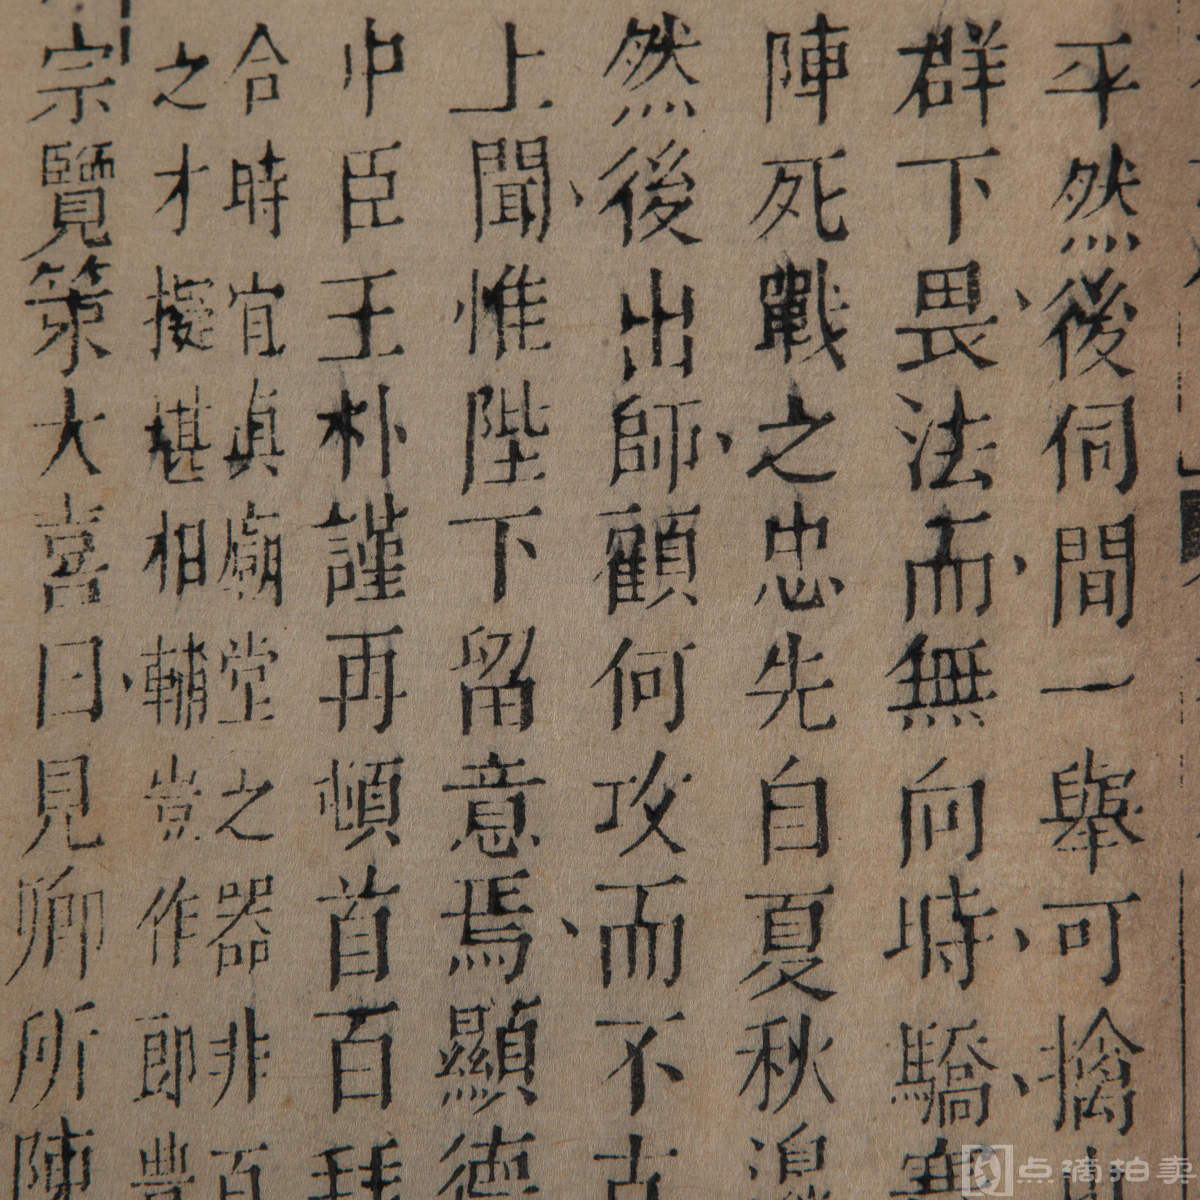 平然後伺間一舉可擒
群下畏法而無向時驕
陣死戰之忠先自夏秋
然後出師顧何攻而不
上聞惟陛下留意焉顯德
中臣王朴謹再頓首百拜
合時宜真廟堂之器非百
之才擬堪相輔豈作即
宗覽策大喜曰見卿所陳
点滴拍卖